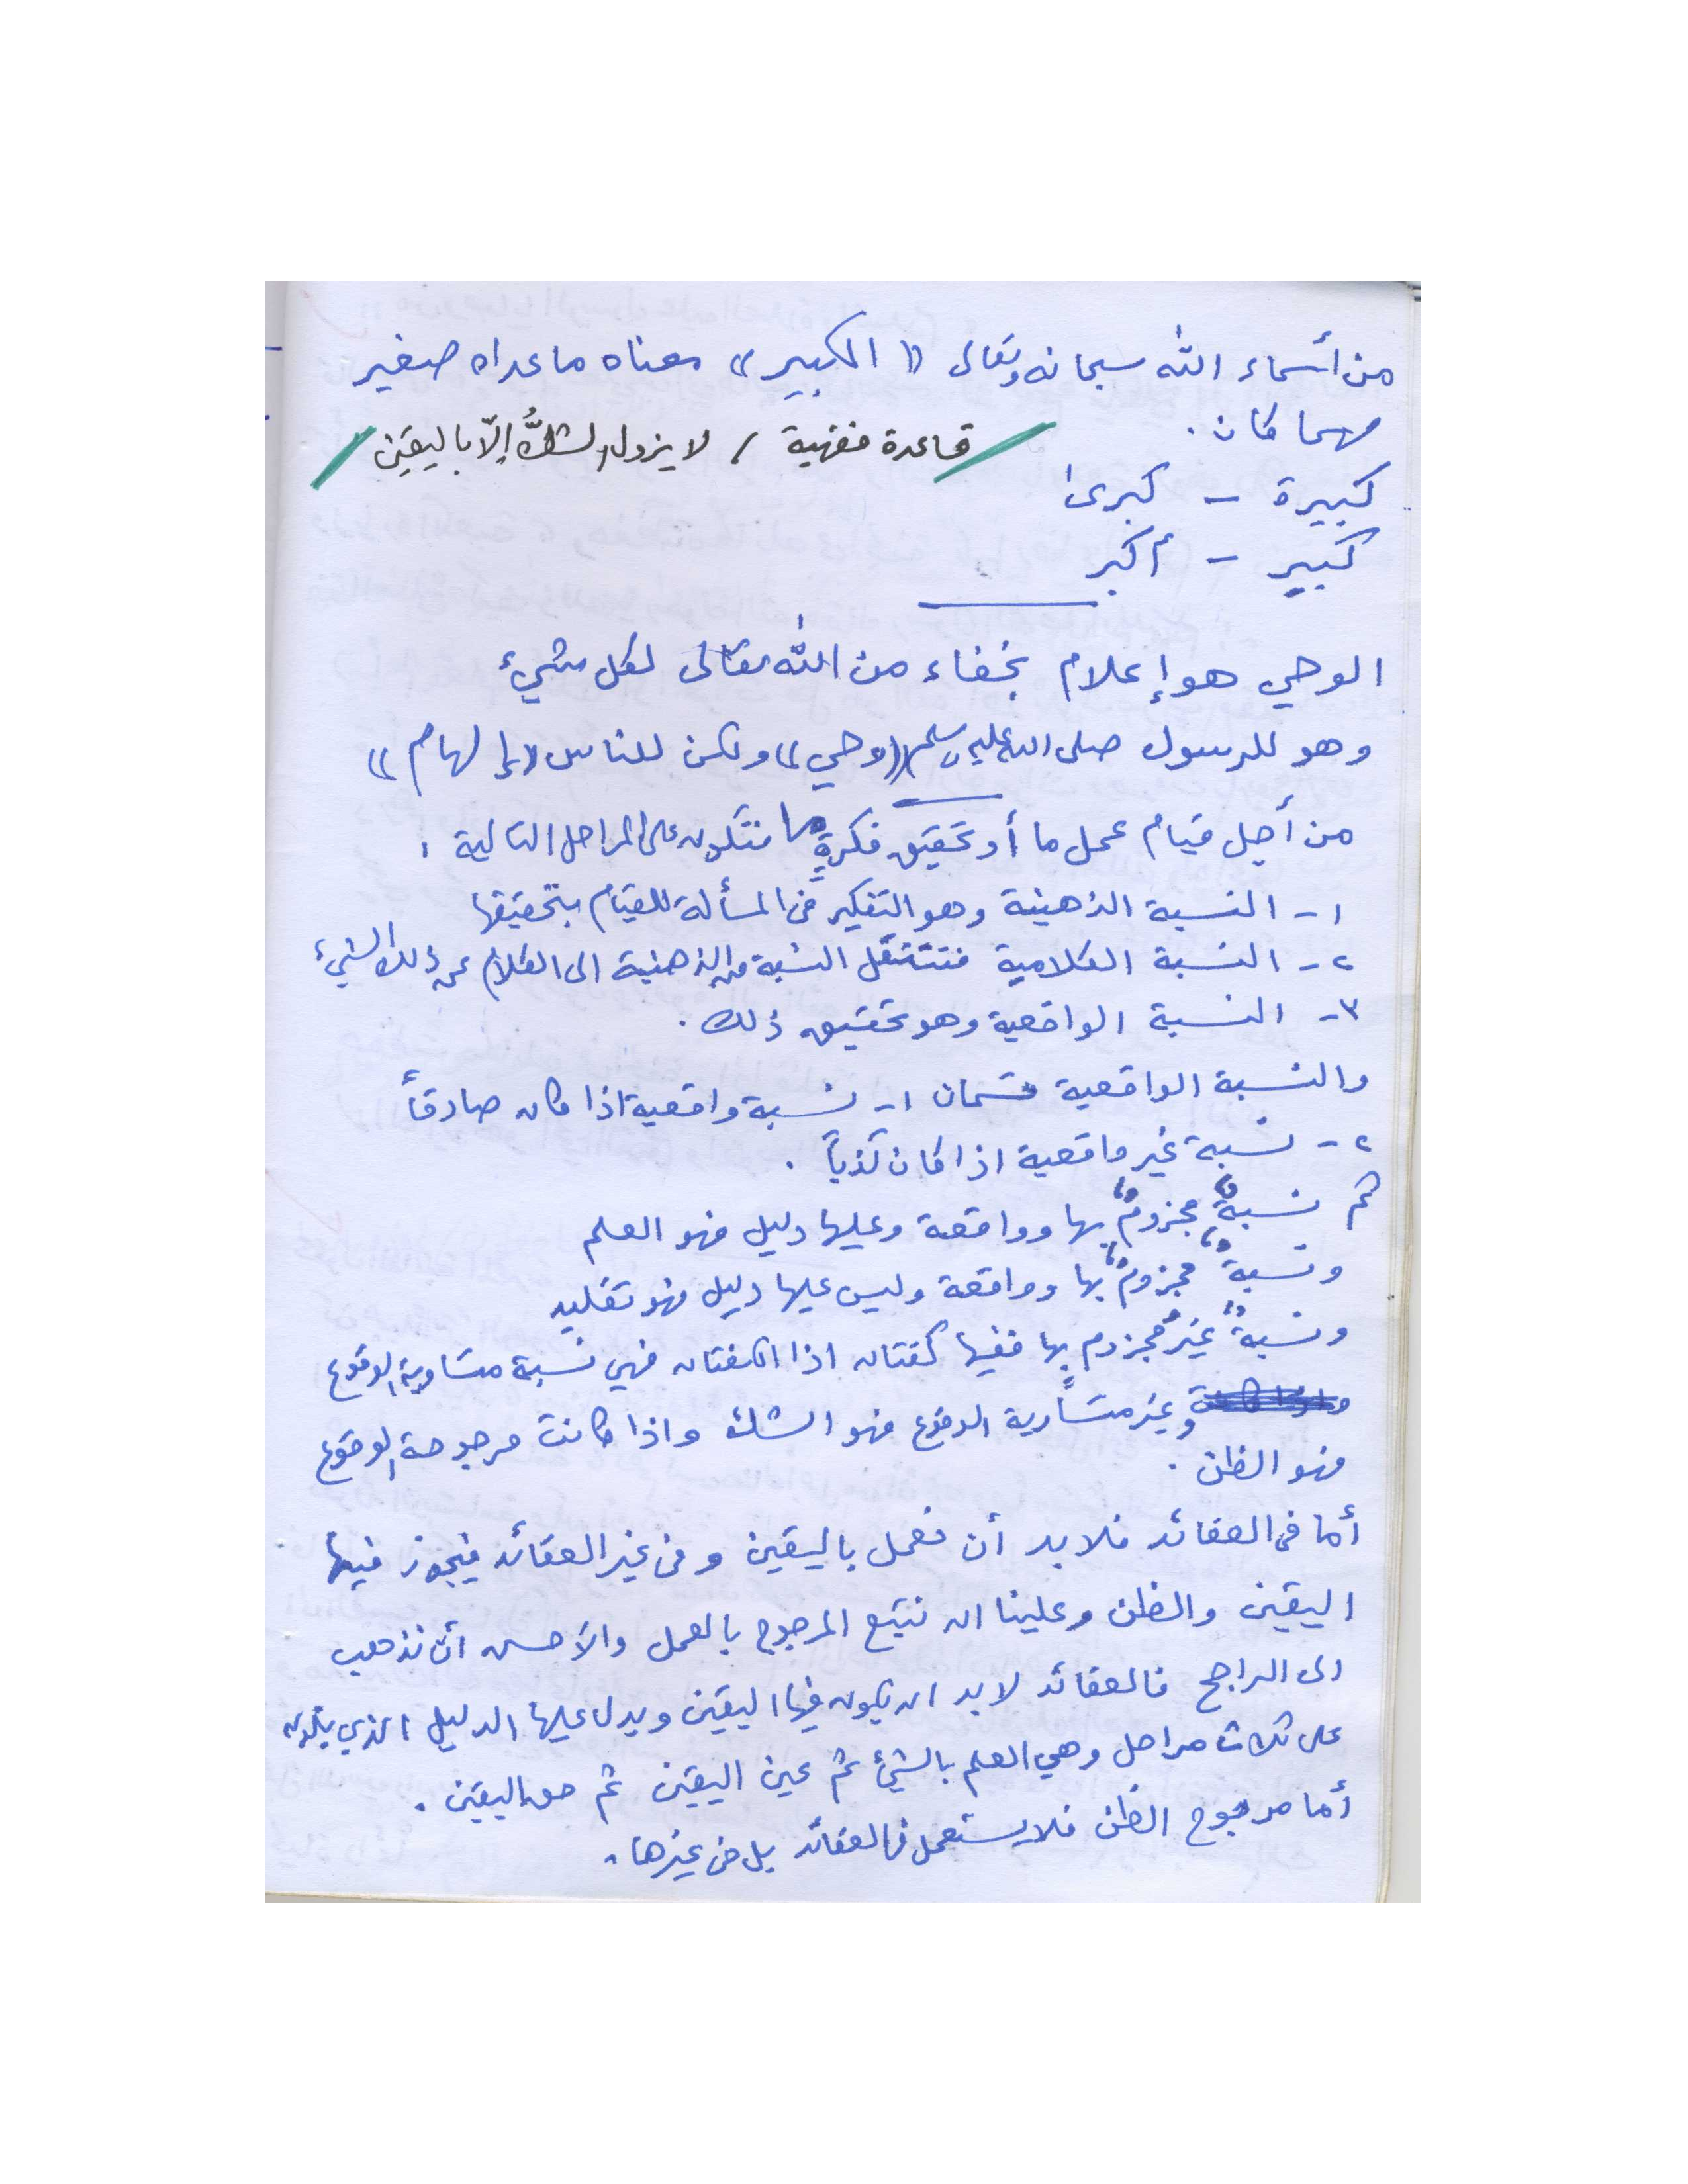 من أسماء الله سبحانه وتعالى «الكبير» معناه ماعداه صغير
مهما كان.
قاعدة فقهية / لا يزول الشكُّ إلّا باليقين
كبيرة - كبرى
كبير - أكبر
الوحي هو إعلام بخفاء من الله تعالى لكل شيء
وهو للرسول صلى الله عليه وسلم «وحي» ولكن للناس «إلهام»
من أجل قيام عمل ما أو تحقيق فكرةٍ ما تتكون على المراحل التالية:
١- النسبة الذهنية وهو التفكير في المسألة للقيام بتحقيقها
٢- النسبة الكلامية فتنتقل النسبة من الذهنية الى الكلام عن ذلك الشيء
٣- النسبة الواقعية وهو تحقيق ذلك.
والنسبة الواقعية قسمان ١- نسبة واقعية اذا كان صادقاً
٢- نسبة غير واقعية اذا كان كذباً.
ثم نسبةٌ مجزومٌ بها وواقعة وعليها دليل فهو العلم
ونسبةٌ مجزومٌ بها وواقعة وليس عليها دليل فهو تقليد
ونسبةٌ غيرُ مجزوم بها ففيها كفتان اذا الكفتان فهي نسبة متساوية الوقوع
وغير متساوية الوقوع فهو الشك واذا كانت مرجوحة الوقوع
فهو الظن.
أما في العقائد فلا بد أن نعمل باليقين وفي غير العقائد فيجوز فيها
اليقين والظن وعلينا ان نتبع المرجوح بالعمل والأحسن أن نذهب
الى الراجح فالعقائد لا بد ان يكون فيها اليقين ويدل عليها الدليل الذي يكون
على ثلاث مراحل وهي العلم بالشيئ ثم عين اليقين ثم حق اليقين.
أما مرجوح الظن فلا يستعمل في العقائد بل في غيرها.